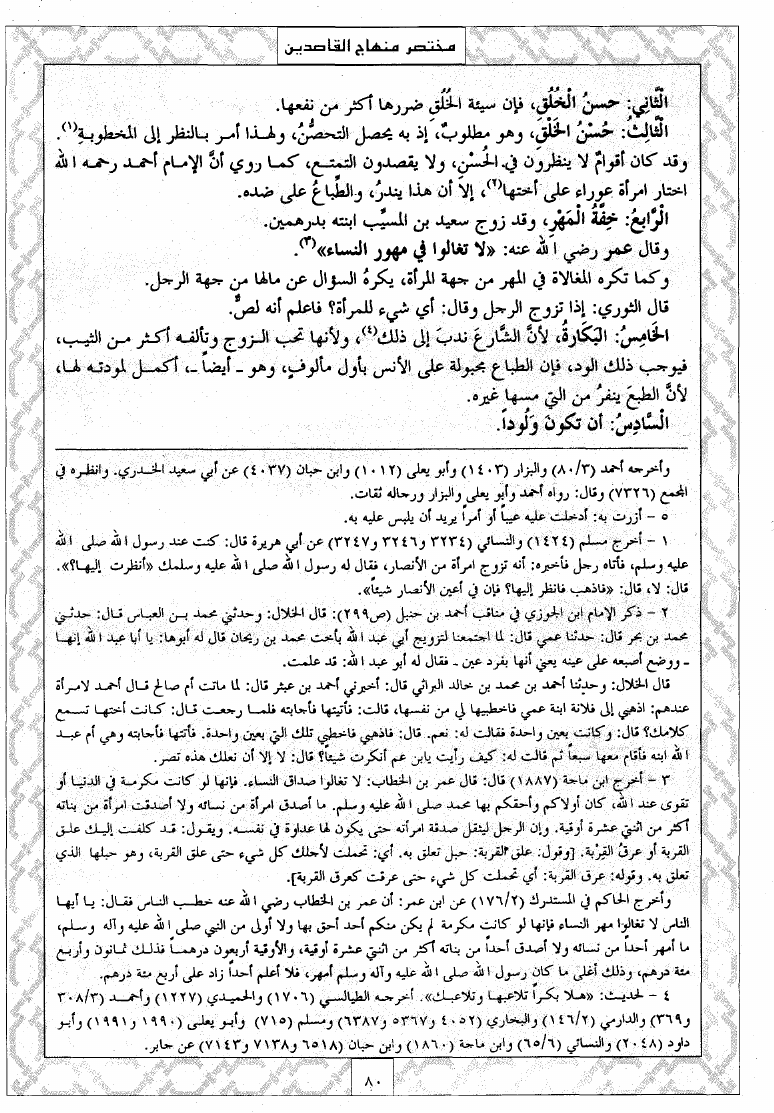 مختصر منهاج القاصدين
الْثَّانِي: حسنُ الْخُلُقِ، فإن سيئة الخُلُقِ ضررها أكثر من نفعها.
الْثَّالِثُ: حُسْنُ الخَلْقِ، وهو مطلوبٌ، إذ به يحصل التحصُّنُ، ولهذا أمر بالنظر إلى المخطوبةِ(١).
وقد كان أقوامٌ لا ينظرون في الحُسْنِ، ولا يقصدون التمتع، كما روي أنَّ الإمام أحمد رحمه الله
اختار امرأة عوراء على أختها(٢)، إلاَّ أن هذا يندرُ، والطِّباعُ على ضده.
الْرَّابِعُ: خِفَّةُ الْمَهْرِ، وقد زوج سعيد بن المسيِّب ابنته بدرهمين.
وقال عمر رضي الله عنه: «لا تغالوا في مهور النساء»(٣).
وكما تكره المغالاة في المهر من جهة المرأة، يكرهُ السؤال عن مالها من جهة الرجل.
قال الثوري: إذا تزوج الرجل وقال: أي شيء للمرأة؟ فاعلم أنه لصٌّ.
الخَامِسُ: البَكارةُ، لأنَّ الشَّارعَ ندبَ إلى ذلك(٤)، ولأنها تحب الزوج وتألفه أكثر من الثيب،
فيوجب ذلك الود، فإن الطباع مجبولة على الأنس بأول مألوفٍ، وهو - أيضاً -، أكمل لمودته لها،
لأنَّ الطبعَ ينفرُ من التي مسها غيره.
الْسَّادِسُ: أن تكونَ وَلُوداً.
وأخرجه أحمد (٨٠/٣) والبزار (١٤٠٣) وأبو يعلى (١٠١٢) وابن حبان (٤٠٣٧) عن أبي سعيد الخدري. وانظره في
المجمع (٧٣٢٦) وقال: رواه أحمد وأبو يعلى والبزار ورجاله ثقات.
٥ - أزرت به: أدخلت عليه عيباً أو أمراً يريد أن يلبس عليه به.
١ - أخرج مسلم (١٤٢٤) والنسائي (٣٢٣٤ و٣٢٤٦ و٣٢٤٧) عن أبي هريرة قال: كنت عند رسول الله صلى الله
عليه وسلم، فأتاه رجل فأخبره: أنه تزوج امرأة من الأنصار، فقال له رسول الله صلى الله عليه وسلمك «أنظرت إليها؟».
قال: لا، قال: «فاذهب فانظر إليها؟ فإن في أعين الأنصار شيئاً».
٢ - ذكر الإمام ابن الجوزي في مناقب أحمد بن حنبل (ص٢٩٩): قال الخلال: وحدثني محمد بن العباس قال: حدثني
محمد بن بحر قال: حدثنا عمي قال: لما اجتمعنا لتزويج أبي عبد الله بأخت محمد بن ريحان قال له أبوها: يا أبا عبد الله إنها
- ووضع أصبعه على عينه يعني أنها بفرد عين - فقال له أبو عبد الله: قد علمت.
قال الخلال: وحدثنا أحمد بن محمد بن خالد البراثي قال: أخبرني أحمد بن عبثر قال: لما ماتت أم صالح قال أحمد لامرأة
عندهم: اذهبي إلى فلانة ابنة عمي فاخطبيها لي من نفسها، قالت: فأتيتها فأجابته فلما رجعت قال: كانت أختها تسمع
كلامك؟ قال: وكانت بعين واحدة فقالت له: نعم. قال: فاذهبي فاخطبي تلك التي بعين واحدة. فأتتها فأجابته وهي أم عبد
الله ابنه فأقام معها سبعاً ثم قالت له: كيف رأيت يابن عم أنكرت شيئاً؟ قال: لا إلا أن نعلك هذه تصر.
٣ - أخرج ابن ماجة (١٨٨٧) قال: قال عمر بن الخطاب: لا تغالوا صداق النساء. فإنها لو كانت مكرمة في الدنيا أو
تقوى عند الله، كان أولاكم وأحقكم بها محمد صلى الله عليه وسلم. ما أصدق امرأة من نسائه ولا أصدقت امرأة من بناته
أكثر من اثنتي عشرة أوقية. وإن الرجل ليثقل صدقة امرأته حتى يكون لها عداوة في نفسه. ويقول: قد كلفت إليك علق
القربة أو عرقُ القِرْبة. [وقول: علق القربة: حبل تعلق به. أي: تحملت لأجلك كل شيء حتى علق القربة، وهو حبلها الذي
تعلق به. وقوله: عرق القربة: أي تحملت كل شيء حتى عرقت كعرق القربة].
وأخرج الحاكم في المستدرك (١٧٦/٢) عن ابن عمر: أن عمر بن الخطاب رضي الله عنه خطب الناس فقال: يا أيها
الناس لا تغالوا مهر النساء فإنها لو كانت مكرمة لم يكن منكم أحد أحق بها ولا أولى من النبي صلى الله عليه وآله وسلم،
ما أمهر أحداً من نسائه ولا أصدق أحداً من بناته أكثر من اثنتي عشرة أوقية، والأوقية أربعون درهماً فذلك ثمانون وأربع
مئة درهم، وذلك أغلى ما كان رسول الله صلى الله عليه وآله وسلم أمهر، فلا أعلم أحداً زاد على أربع مئة درهم.
٤ - لحديث: «هلا بكراً تلاعبها وتلاعبك». أخرجه الطيالسي (١٧٠٦) والحميدي (١٢٢٧) وأحمد (٣٠٨/٣
و٣٦٩) والدارمي (١٤٦/٢) والبخاري (٤٠٥٢ و٥٣٦٧ و٦٣٨٧) ومسلم (٧١٥) وأبو يعلى (١٩٩٠ و١٩٩١) وأبو
داود (٢٠٤٨) والنسائي (٦٥/٦) وابن ماجة (١٨٦٠) وابن حبان (٦٥١٨ و٧١٣٨ و٧١٤٣) عن جابر.
٨٠